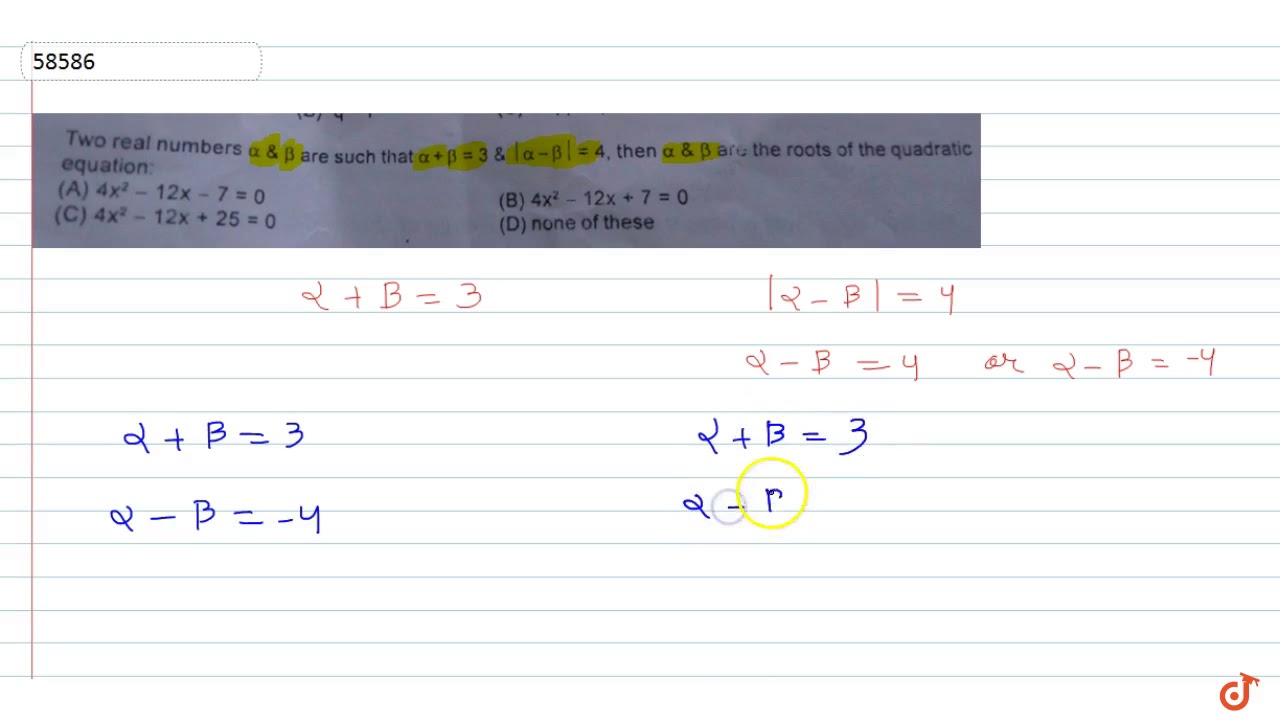 58586
Two real numbers α & β are such that α + β = 3 & |α – β| = 4, then α & β are the roots of the quadratic
equation:
(A) 4x² – 12x – 7 = 0
(B) 4x² – 12x + 7 = 0
(C) 4x² – 12x + 25 = 0
(D) none of these
α + β = 3
|α – β| = 4
α – β = 4 or α – β = -4
α + β = 3
α + β = 3
α – β = -4
α –